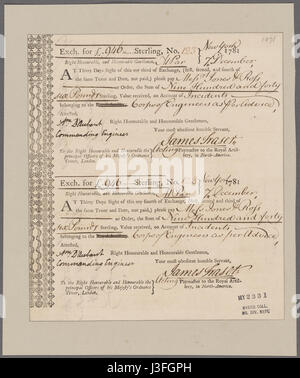 1781
Exch. for £.946 Sterling, No. 123 New York
7 December 1781
Right Honourable, and Honourable Gentlemen,
AT Thirty Days Sight of this our third of Exchange, (first, second, and fourth of the same Tenor and Date, not paid) please pay Messrs. Jones & Ross,
or Order, the Sum of Nine Hundred and forty
six Pounds Sterling, Value received, on Account of Incidents
belonging to the Corps of Engineers as per Advice,
Attested,
Right Honourable and Honourable Gentlemen,
Commanding Engineer
Your most obedient humble Servant,
James Fraser
To the Right Honourable and Honourable the principal Officers of his Majesty's Ordnance Tower, London.
Acting Paymaster to the Royal Artillery, in North-America.
Exch. for £.946 Sterling, No. New York
7 December 1781
Right Honourable, and Honourable Gentlemen,
AT Thirty Days Sight of this our fourth of Exchange, (first, second, and third of the same Tenor and Date, not paid) please pay Messrs. Jones & Ross
or Order, the Sum of Nine Hundred and forty
six Pounds Sterling, Value received, on Account of Incidents
belonging to the Corps of Engineers as per Advice,
Attested,
Right Honourable and Honourable Gentlemen,
Commanding Engineer
Your most obedient humble Servant,
James Fraser
To the Right Honourable and Honourable the principal Officers of his Majesty's Ordnance Tower, London.
Acting Paymaster to the Royal Artillery, in North-America.
MY 2331
EMMET COLL.
MS. DIV. NYPL
alamy
alamy
www.alamy.com
J3FGPH